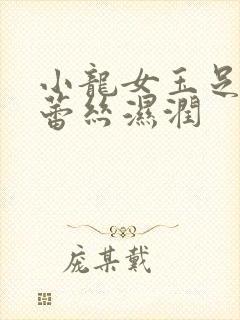 小龍女玉足
蕾絲濕潤
庞某戴